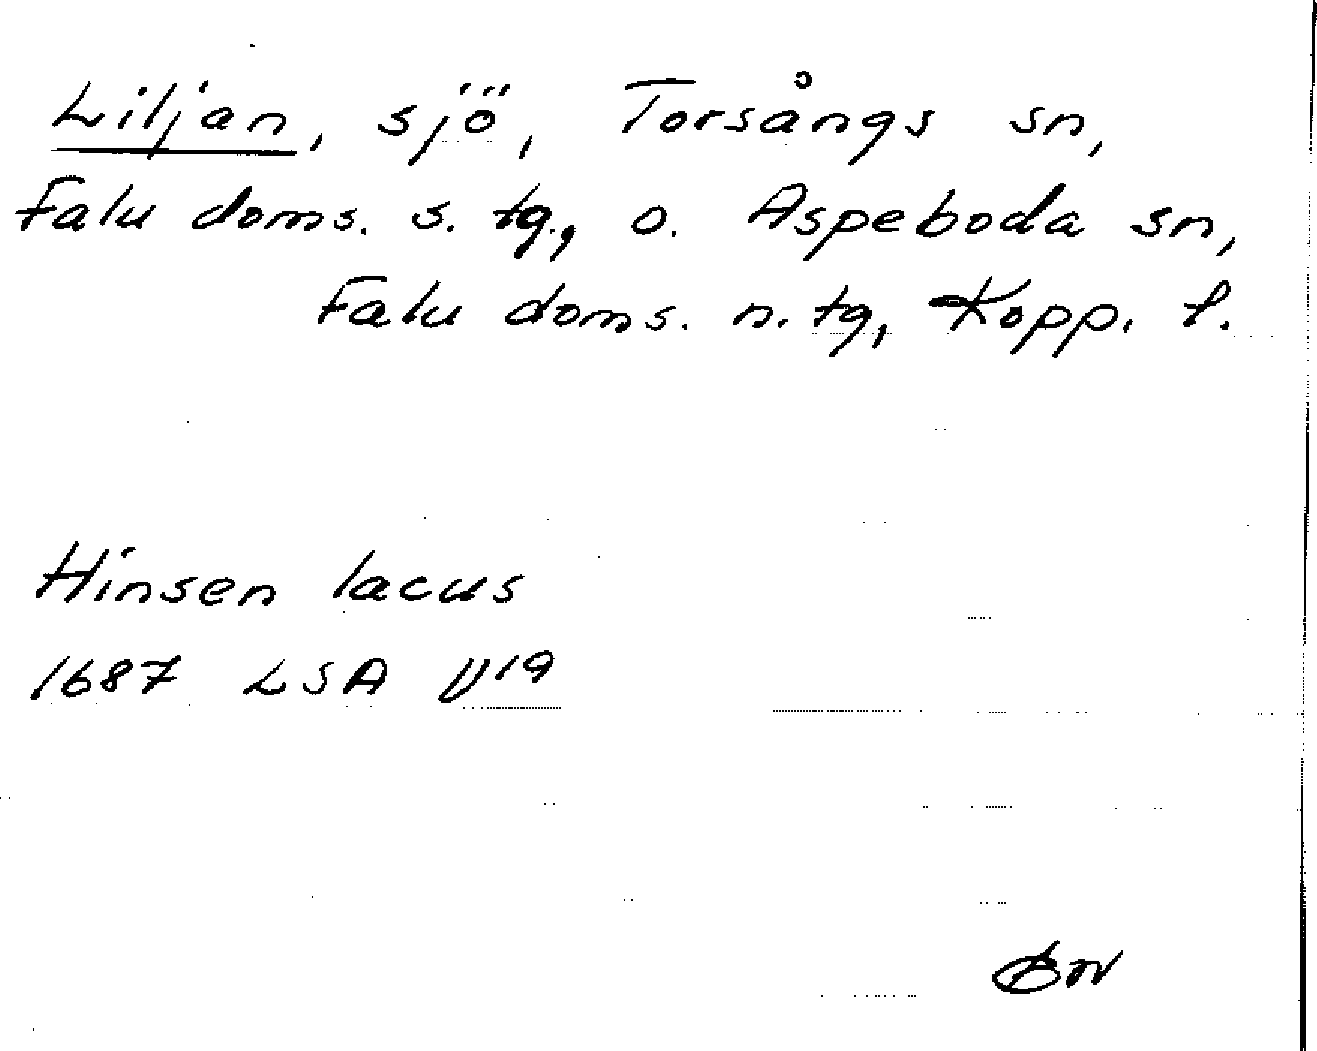 Liljan, sjö, Torsångs sn,
Falu doms. s. tg., o. Aspeboda sn,
Falu doms. n. tg, Kopp. l.
Hinsen lacus
1687 LSA U19